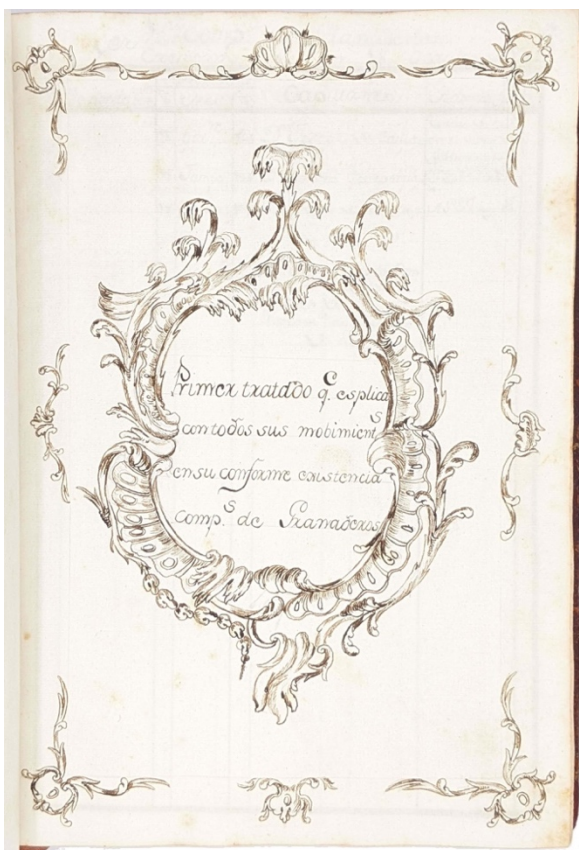 Primer tratádo q.e esplica
con todos sus mobimient.s
en su conforme existencia
Comp.s de Granaderos